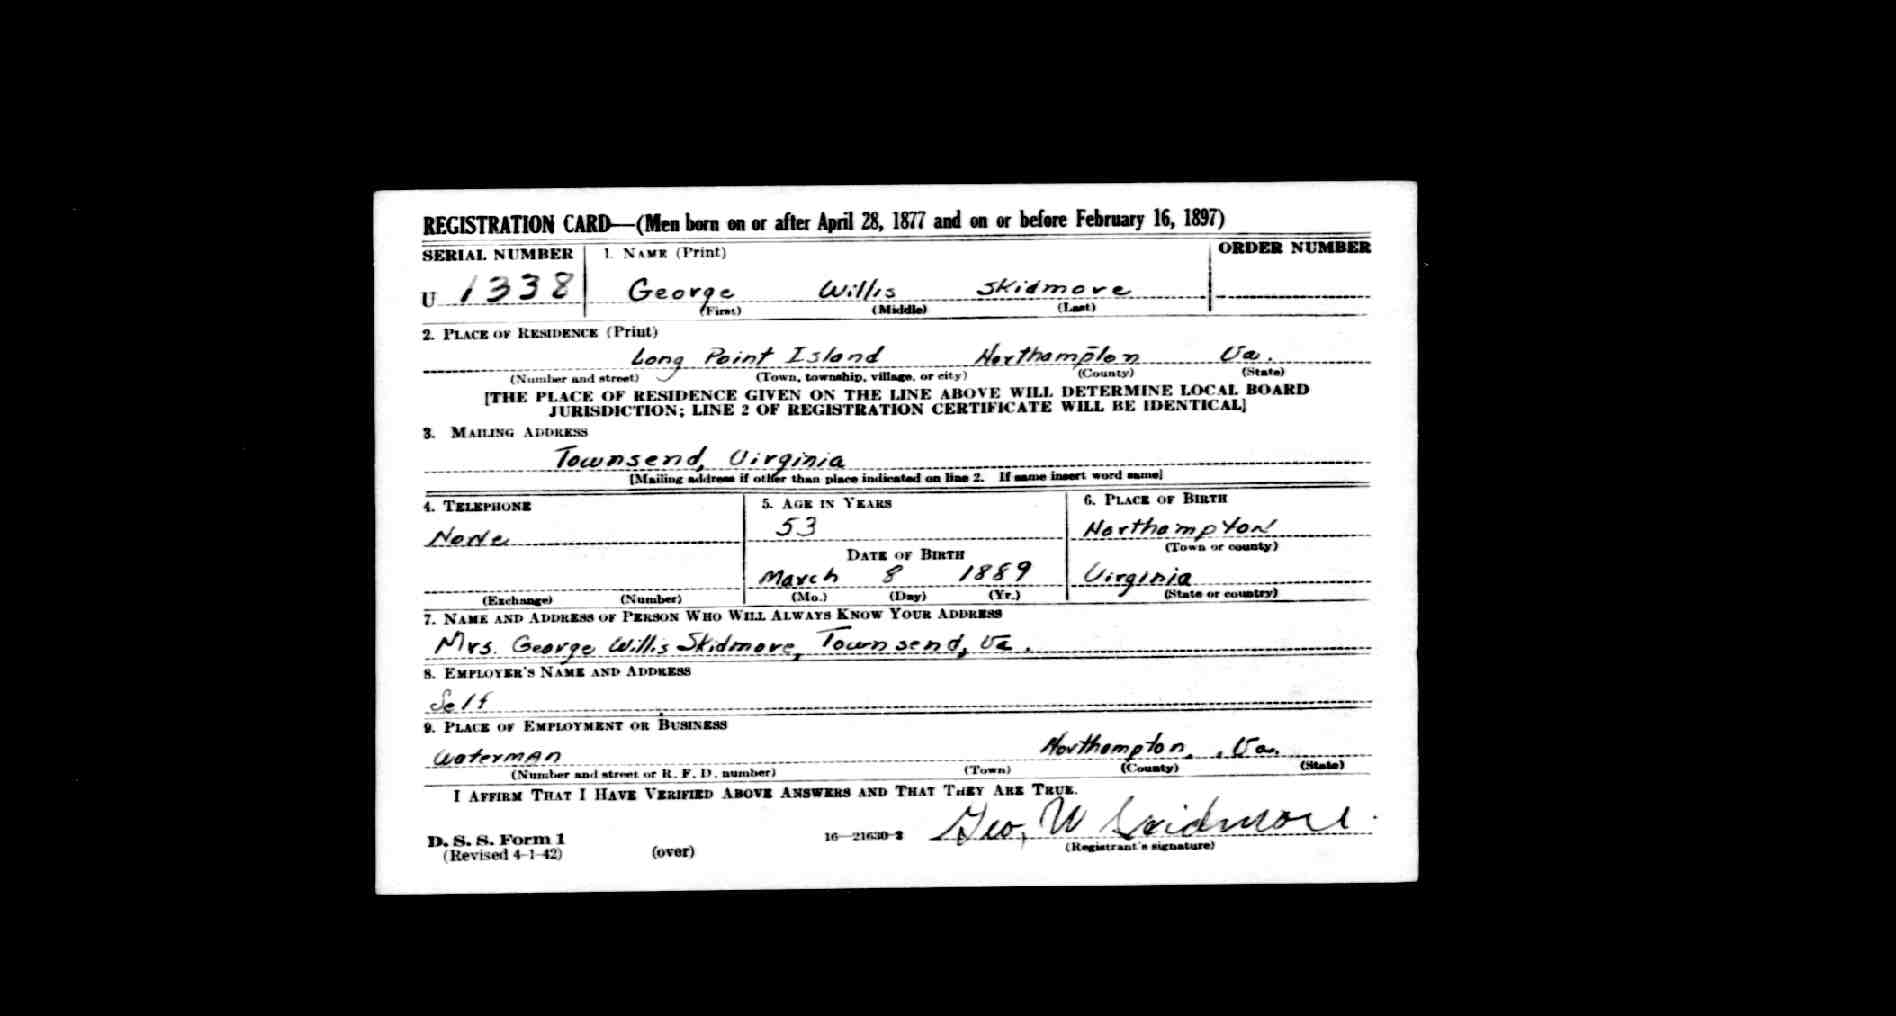 REGISTRATION CARD—(Men born on or after April 28, 1877 and on or before February 16, 1897)
SERIAL NUMBER 1. NAME (Print) ORDER NUMBER
U 1338 George Willis Skidmore
(First) (Middle) (Last)
2. PLACE OF RESIDENCE (Print)
Long Point Island Northampton Va.
(Number and street) (Town, township, village, or city) (County) (State)
[THE PLACE OF RESIDENCE GIVEN ON THE LINE ABOVE WILL DETERMINE LOCAL BOARD
JURISDICTION; LINE 2 OF REGISTRATION CERTIFICATE WILL BE IDENTICAL]
3. MAILING ADDRESS
Townsend, Virginia
[Mailing address if other than place indicated on line 2. If same insert word same]
4. TELEPHONE 5. AGE IN YEARS 6. PLACE OF BIRTH
None 53 Northampton
(Town or county)
DATE OF BIRTH
March 8 1889 Virginia
(Exchange) (Number) (Mo.) (Day) (Yr.) (State or country)
7. NAME AND ADDRESS OF PERSON WHO WILL ALWAYS KNOW YOUR ADDRESS
Mrs. George Willis Skidmore, Townsend, Va.
8. EMPLOYER'S NAME AND ADDRESS
Self
9. PLACE OF EMPLOYMENT OR BUSINESS
Waterman Northampton, Va.
(Number and street or R. F. D. number) (Town) (County) (State)
I AFFIRM THAT I HAVE VERIFIED ABOVE ANSWERS AND THAT THEY ARE TRUE.
D. S. S. Form 1 16—21630-2 Geo, W Skidmore.
(Revised 4-1-42) (over) (Registrant's signature)